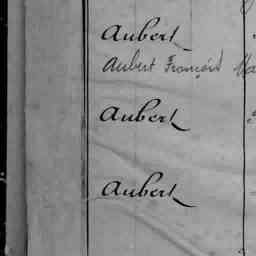 Aubert
Aubert François
Aubert
Aubert